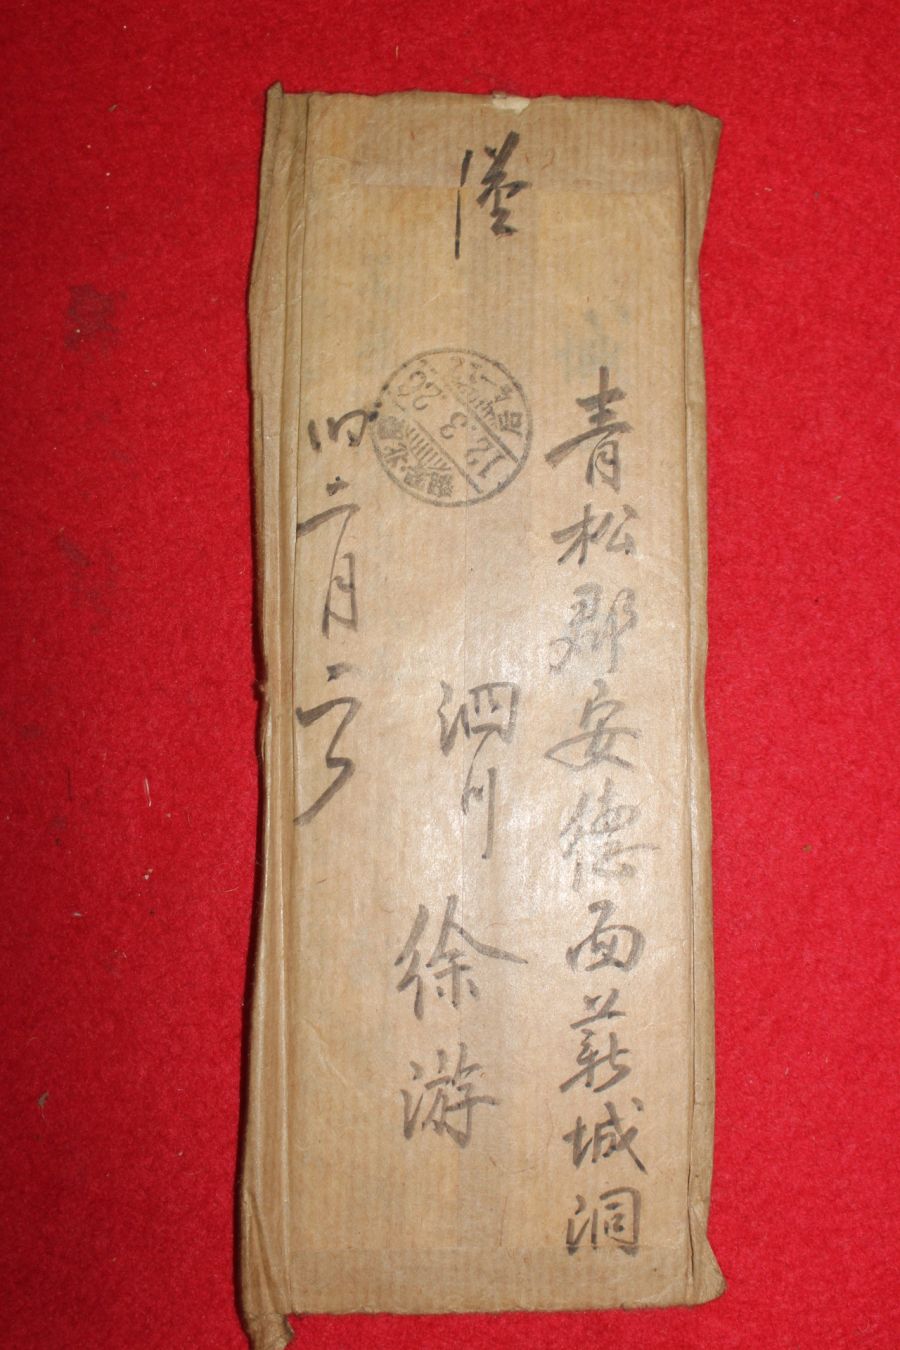 青松郡安德面薪城洞
泗川
徐游
四二月二
12.3.23